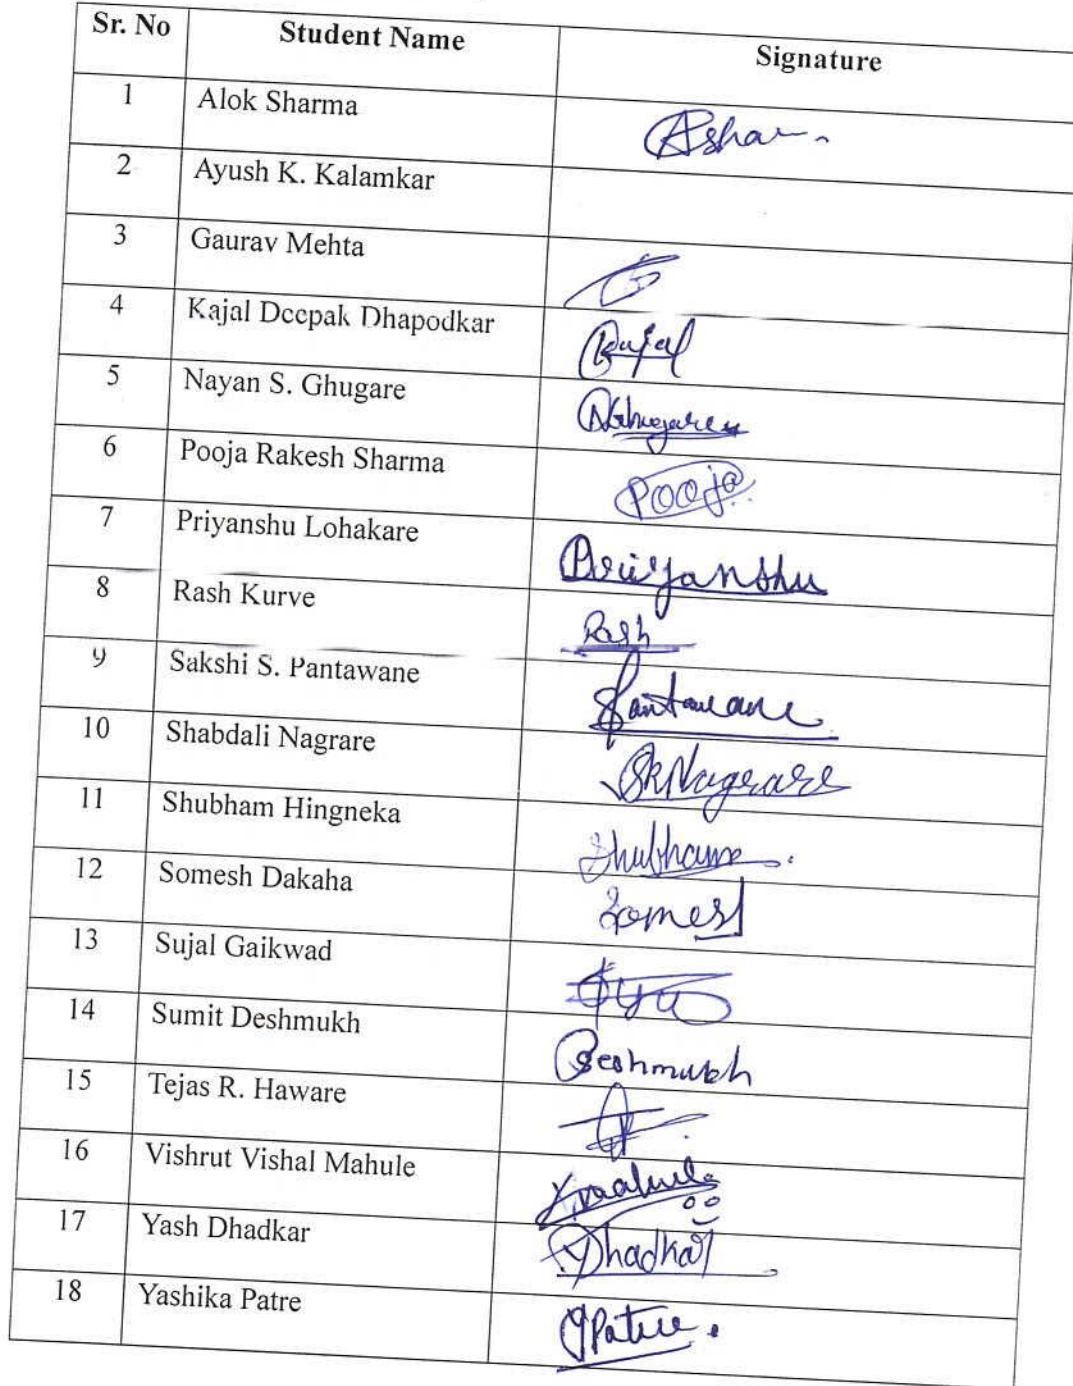 Sr. No Student Name Signature
1 Alok Sharma Ashar
2 Ayush K. Kalamkar
3 Gaurav Mehta
4 Kajal Deepak Dhapodkar Kajal
5 Nayan S. Ghugare NGhugare
6 Pooja Rakesh Sharma Pooja
7 Priyanshu Lohakare Priyanshu
8 Rash Kurve Rash
9 Sakshi S. Pantawane Pantawane
10 Shabdali Nagrare SRNagrare
11 Shubham Hingneka Shubham
12 Somesh Dakaha Somesh
13 Sujal Gaikwad
14 Sumit Deshmukh Deshmukh
15 Tejas R. Haware
16 Vishrut Vishal Mahule Vmahule
17 Yash Dhadkar YDhadkar
18 Yashika Patre YPatre